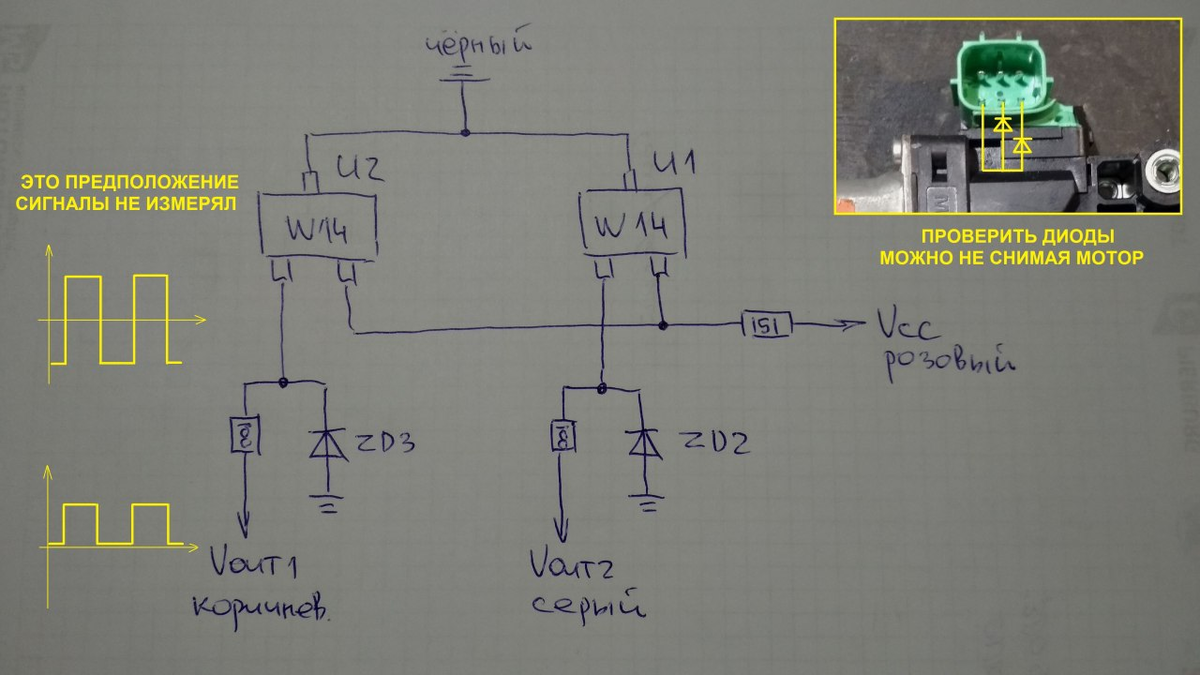 чёрный
U2
U1
W14
W14
ЭТО ПРЕДПОЛОЖЕНИЕ
СИГНАЛЫ НЕ ИЗМЕРЯЛ
ПРОВЕРИТЬ ДИОДЫ
МОЖНО НЕ СНИМАЯ МОТОР
151
Vcc
розовый
ZD3
ZD2
Vout1
коричнев.
Vout2
серый